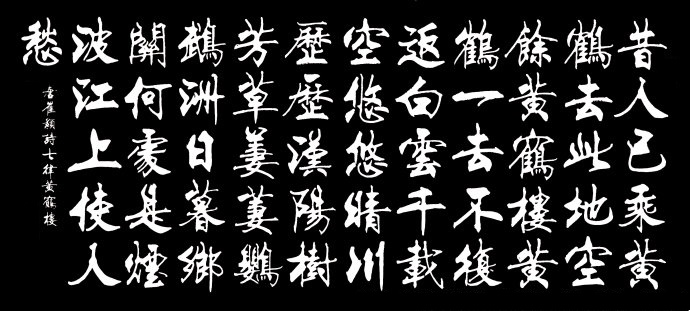 昔人已乘黄
鶴去此地空
餘黄鶴樓黄
鶴一去不復
返白雲千載
空悠悠晴川
歷歷漢陽樹
芳草萋萋鸚
鵡洲日暮鄉
關何處是煙
波江上使人
愁
崔顥詩七律黄鶴楼